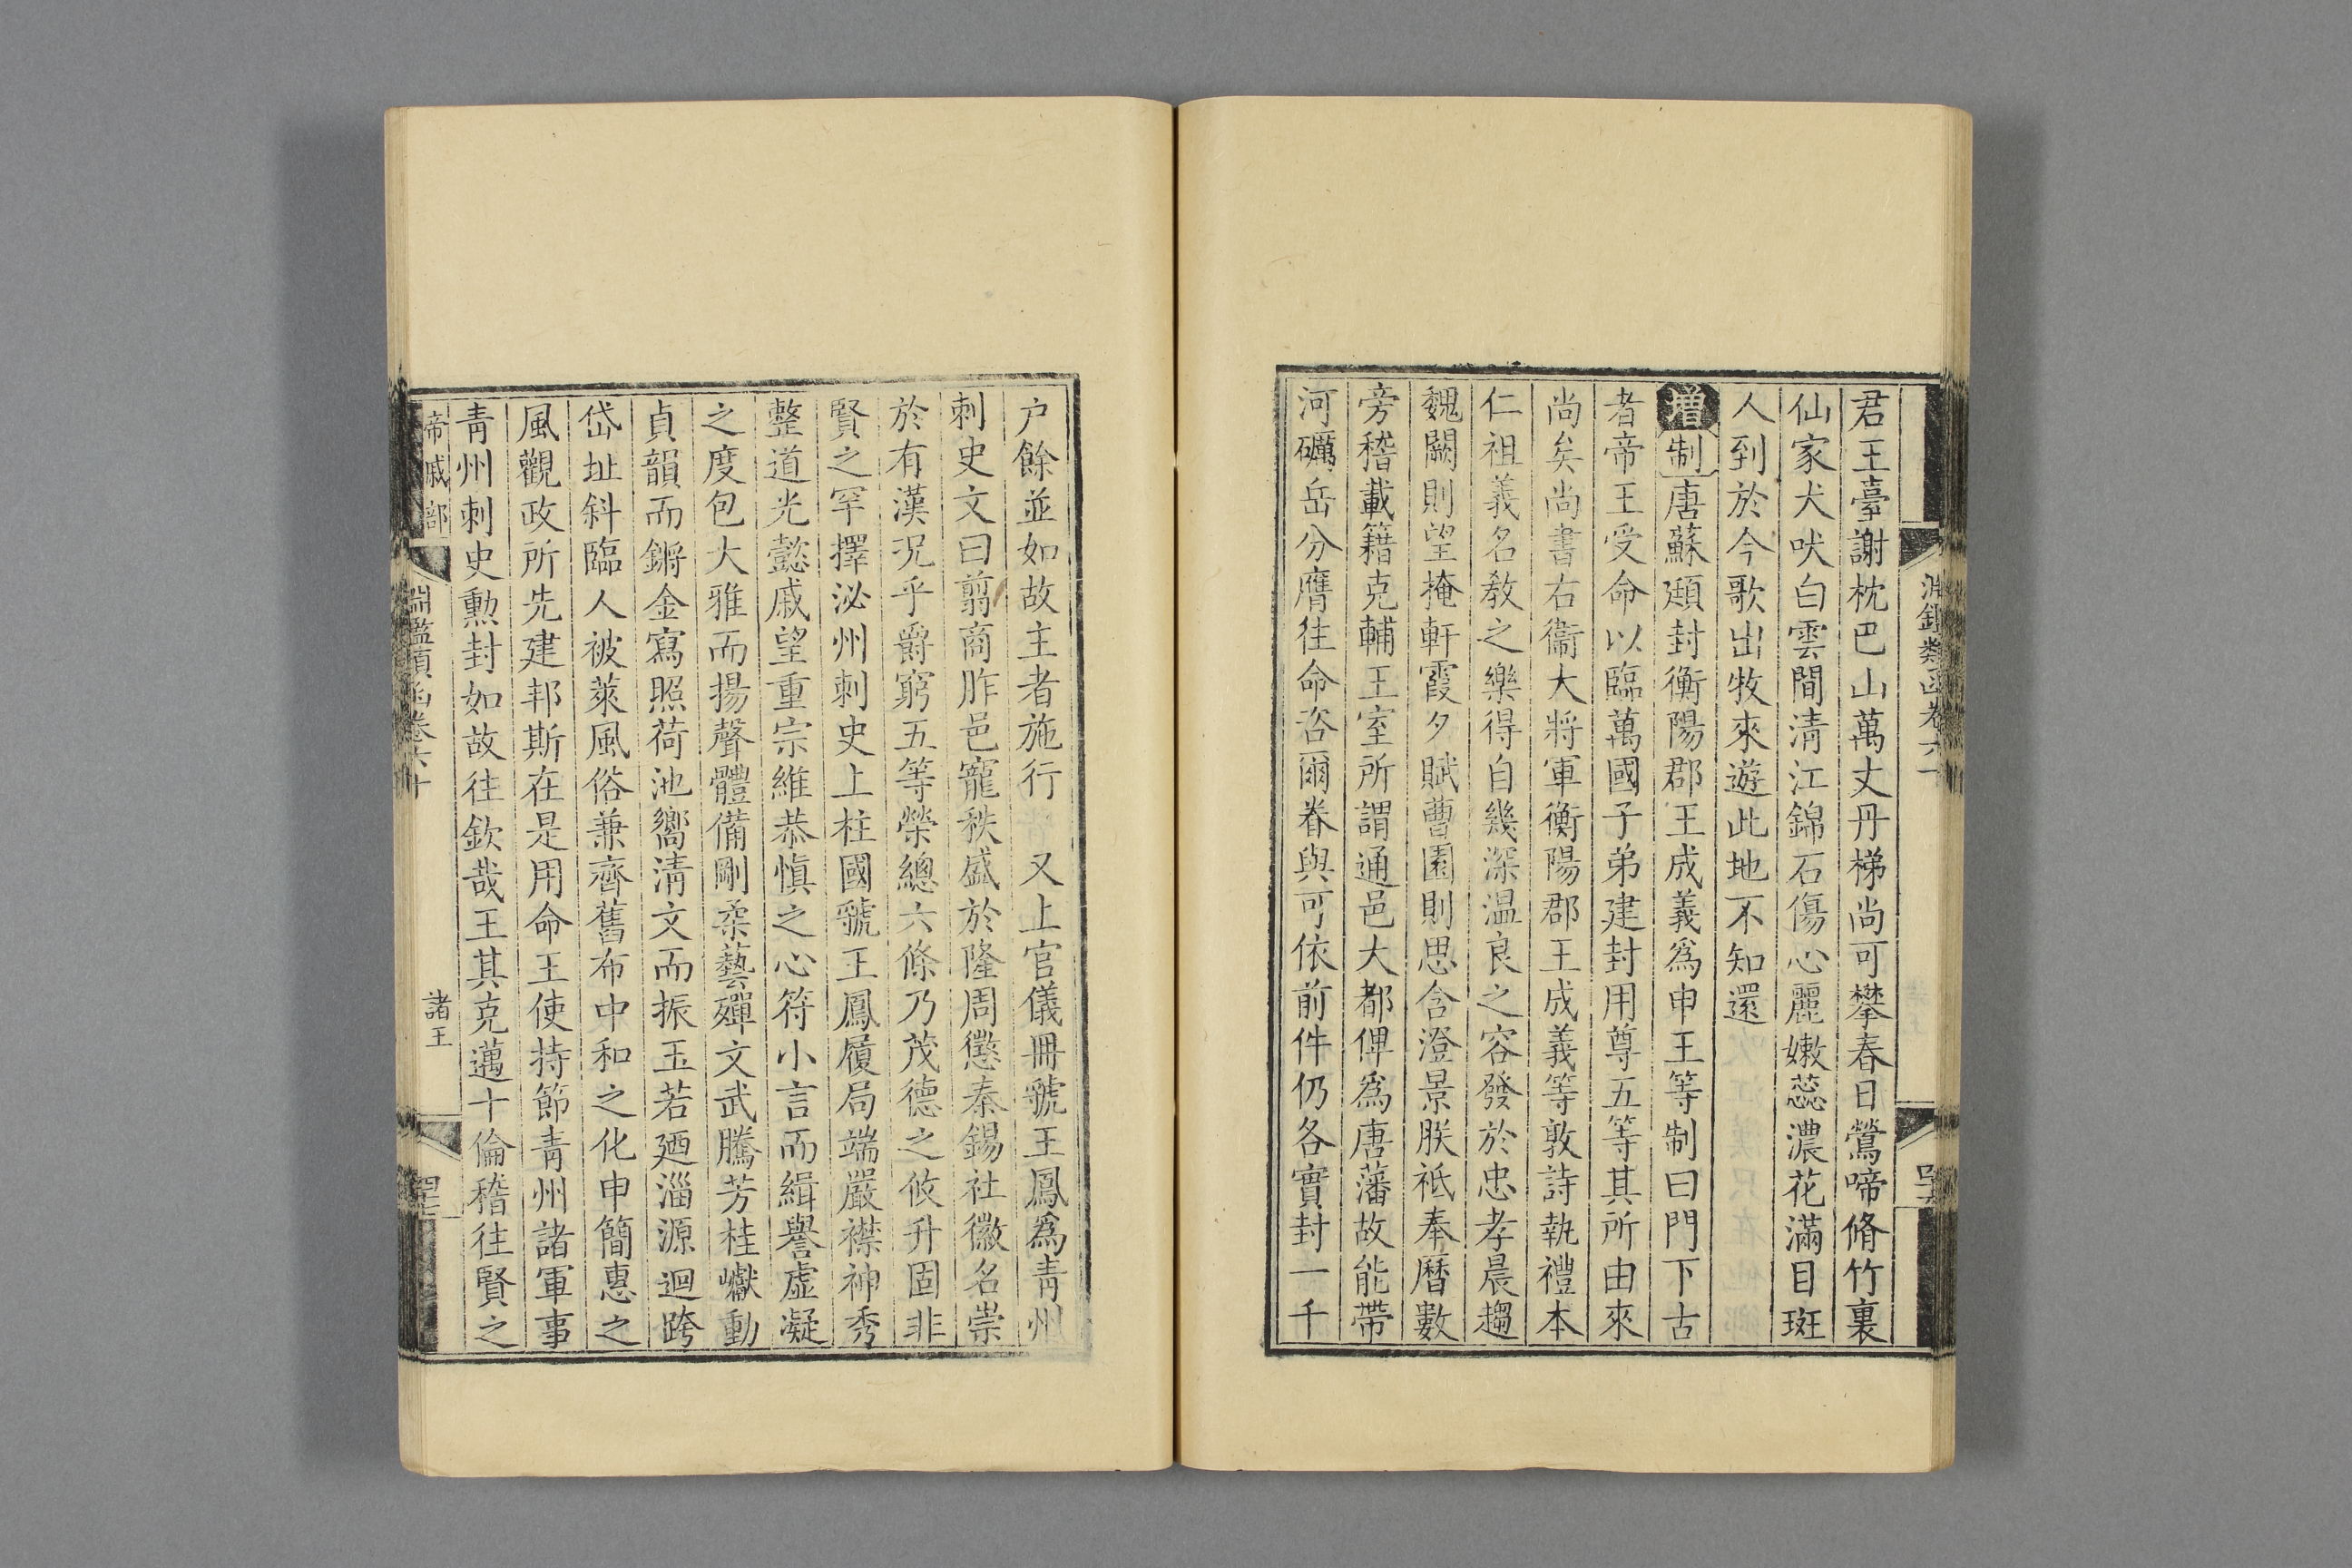 君王臺謝枕巴山萬丈丹梯尚可攀春日鶯啼脩竹裏
仙家犬吠白雲間清江錦石傷心麗嫩蕊濃花滿目斑
人到於今歌出牧來遊此地不知還
增制唐蘇頲封衡陽郡王成義爲申王等制曰門下古
者帝王受命以臨萬國子弟建封用尊五等其所由來
尚矣尚書右衞大將軍衡陽郡王成義等敦詩執禮本
仁祖義名教之樂得自幾深温良之容發於忠孝晨趨
魏闕則望掩軒霞夕賦曹園則思含澄景朕祗奉曆數
旁稽載籍克輔王室所謂通邑大都俾爲唐藩故能帶
河礪岳分膺往命咨爾眷與可依前件仍各實封一千
户餘並如故主者施行　又上官儀冊虢王鳳爲青州
刺史文曰翦商胙邑寵秩盛於隆周懲秦錫社徽名崇
於有漢况乎爵窮五等榮總六條乃茂德之攸升固非
賢之罕擇泌州刺史上柱國虢王鳳履局端嚴襟神秀
整道光懿戚望重宗維恭慎之心符小言而緝譽虛凝
之度包大雅而揚聲體備剛柔藝殫文武騰芳桂巘動
貞韻而鏘金寫照荷池嚮清文而振玉若廼淄源迴跨
岱址斜臨人被萊風俗兼齊舊布中和之化申簡惠之
風觀政所先建邦斯在是用命王使持節青州諸軍事
青州刺史勲封如故往欽哉王其克邁十倫稽往賢之
帝戚部　淵鑑類函卷六十　諸王